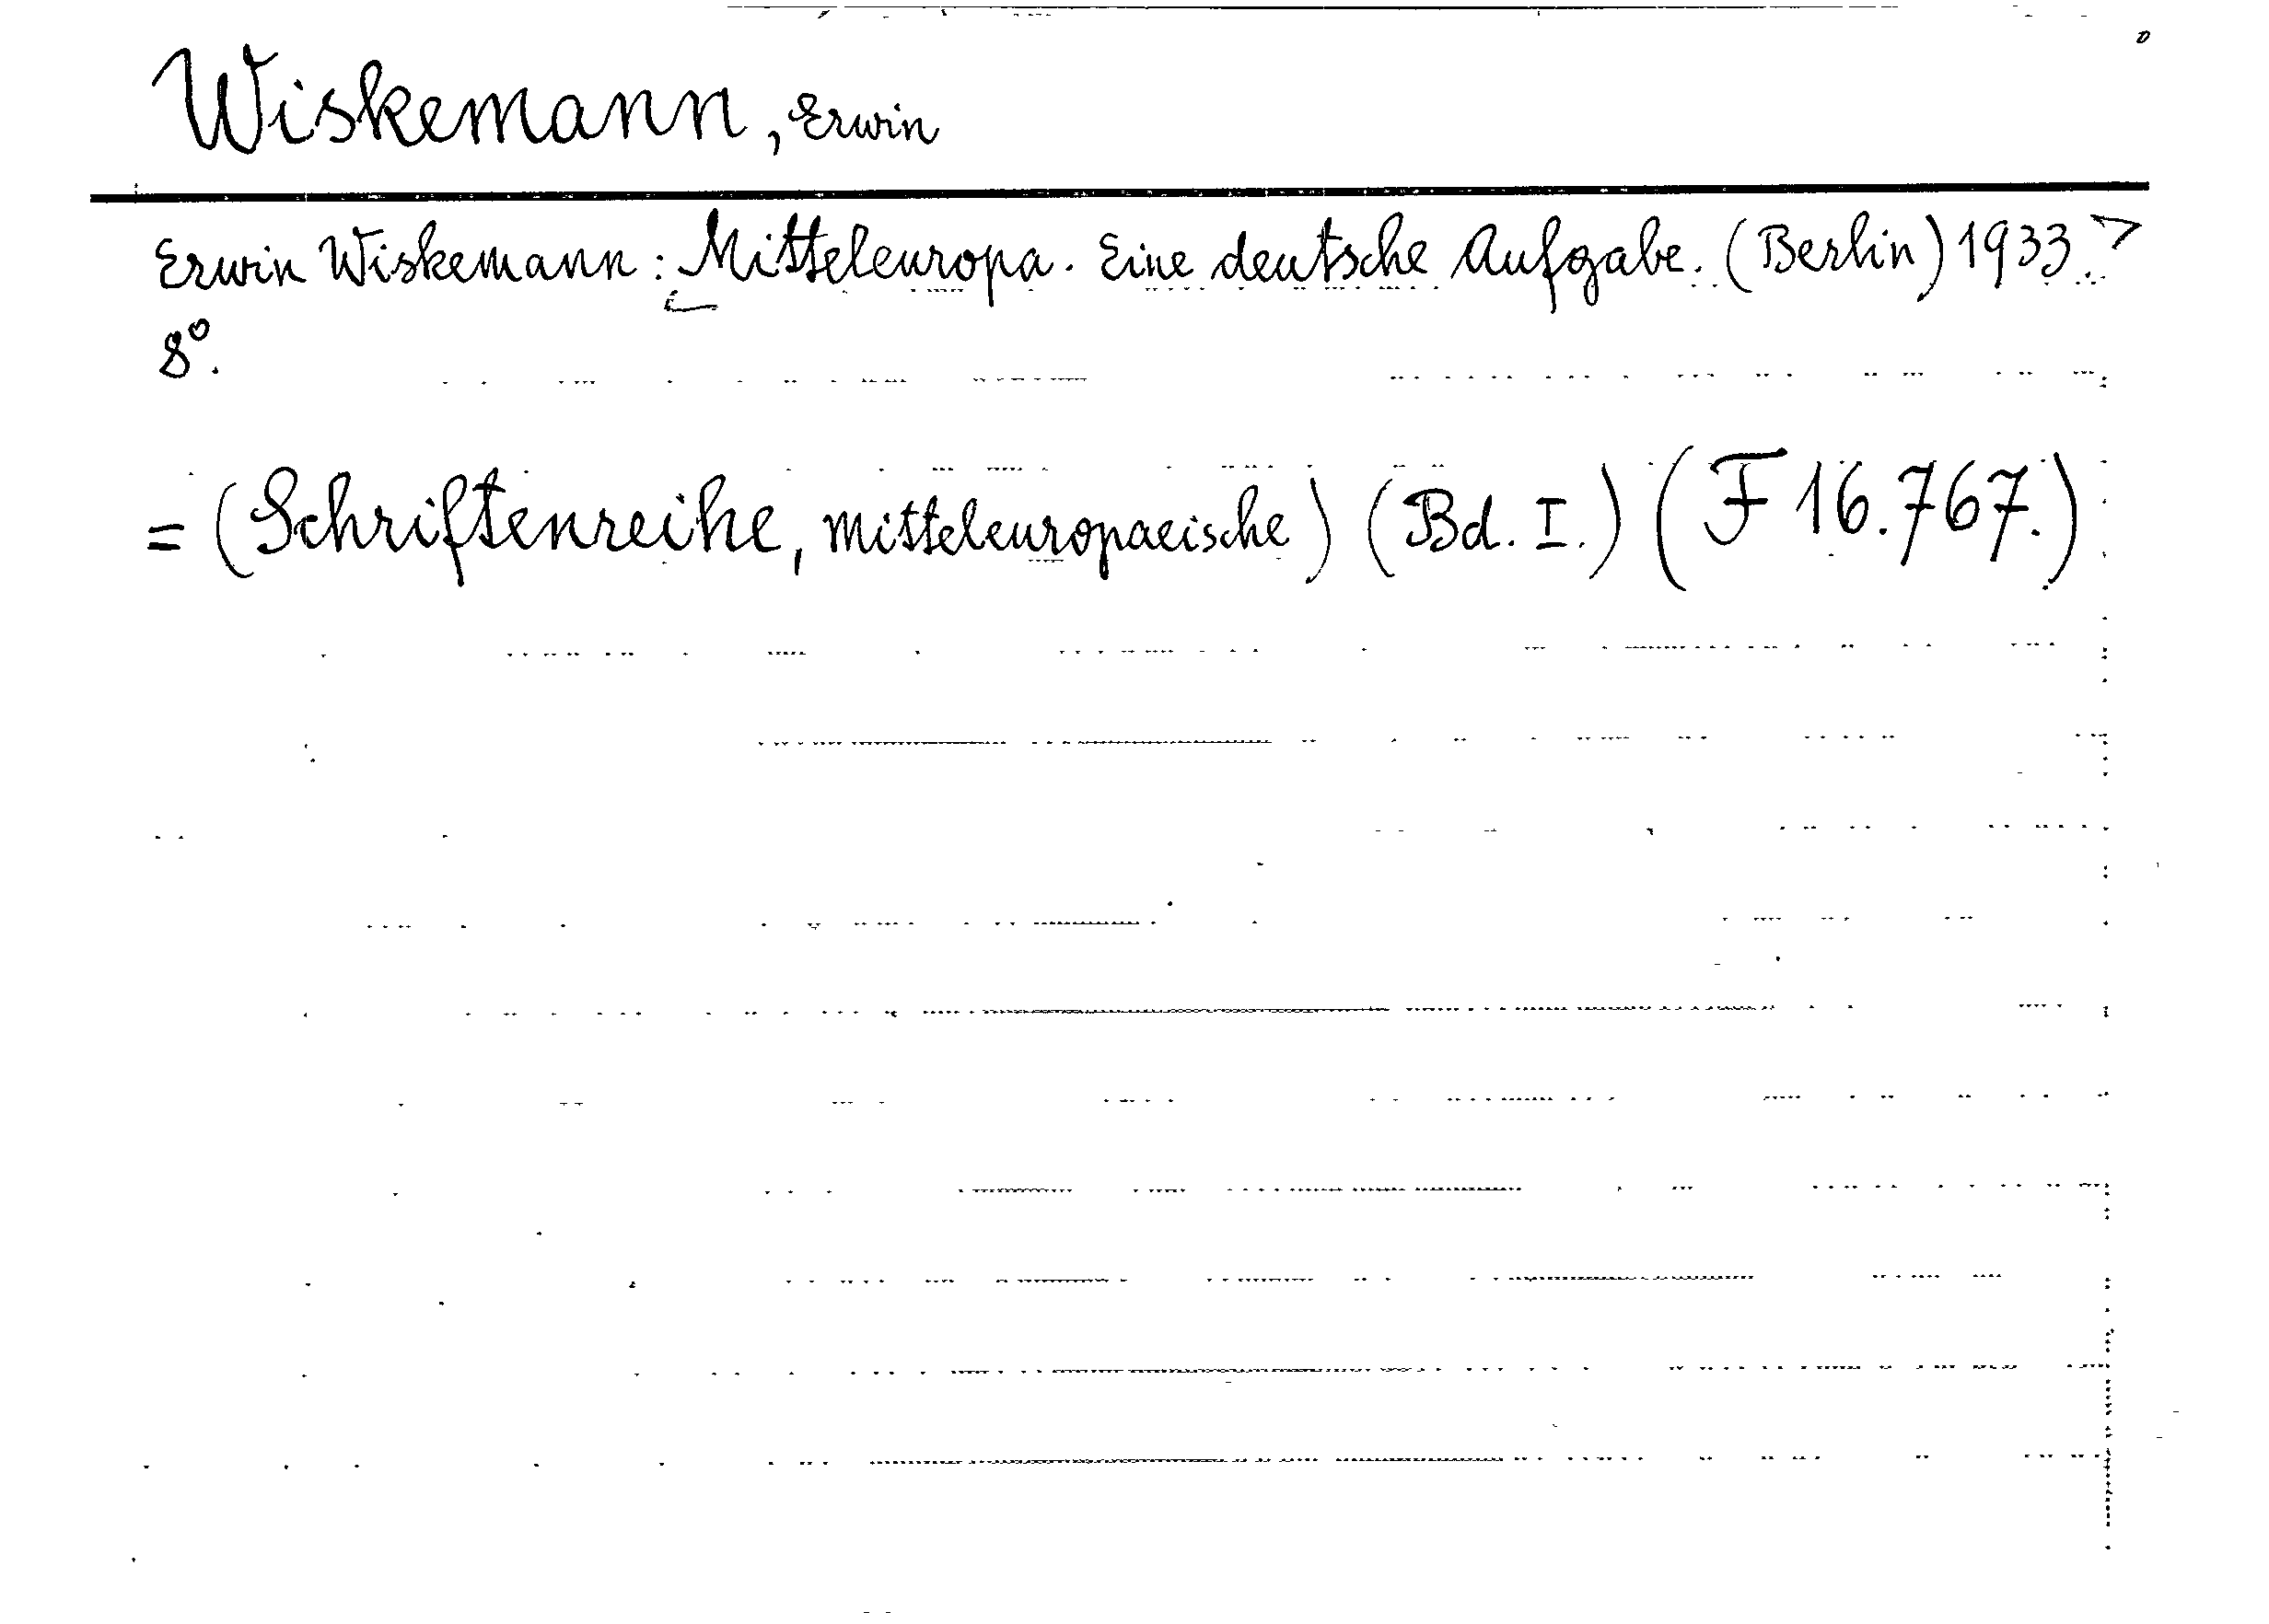 Wiskemann, Erwin
Erwin Wiskemann: Mitteleuropa. Eine deutsche Aufgabe. (Berlin) 1933.
8°.
= (Schriftenreihe, mitteleuropaeische) (Bd. I.) (F 16.767.)